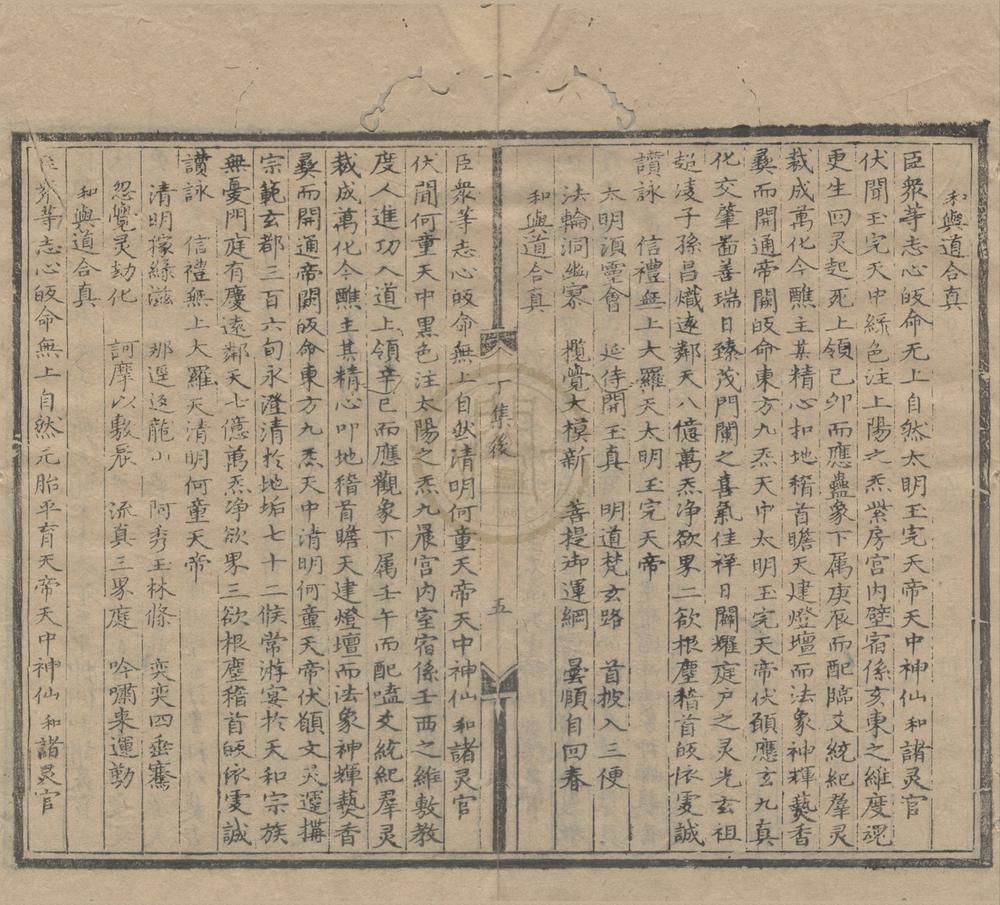 和與道合真
臣衆等志心皈命无上自然太明玉完天帝天中神仙和諸灵官
伏聞玉完天中綠色注上陽之炁紫房宫内壁宿係亥東之維度魂
更生回灵起死上領己夘而應蠱象下属庚辰而配臨爻統紀羣灵
裁成萬化今醮主某精心扣地稽首瞻天建燈壇而法象神輝爇香
彞而開通帝闕皈命東方九炁天中太明玉完天帝伏頋應玄九真
化交肇啚善瑞日臻茂門闌之喜氣佳祥日闢耀庭户之灵光玄祖
超淩子孫昌熾遠鄰天八億萬炁净欲界二欲根塵稽首皈依䖍誠
讃詠　信禮無上大羅天太明玉完天帝
太明湏䨇會　延侍開玉真　明道梵玄路　首披入三便
法輪洞幽寥　攬覺大模新　菩提㳺運綱　曇頋自回春
和與道合真
丁集後
五
臣衆等志心皈命無上自然清明何童天帝天中神仙和諸灵官
伏聞何童天中黒色注太陽之炁九晨宫内室宿係壬西之維敷教
度人進功入道上領辛巳而應觀象下属壬午而配嗑爻統紀羣灵
裁成萬化今醮主某精心叩地稽首瞻天建燈壇而法象神輝爇香
彞而開通帝闕皈命東方九炁天中清明何童天帝伏頟文灵遐搆
宗範玄都三百六旬永澄清扵地垢七十二候常游宴扵天和宗族
無憂門庭有慶遠鄰天七億萬炁净欲界三欲根塵稽首皈依䖍誠
讃詠　信禮無上大羅天清明何童天帝
清明㨿緑滋　那逕返龍山　阿秀玉林條　奕奕四垂騫
忽覺灵劫化　訶摩以數辰　流真三界庭　吟嘯来運動
和與道合真
臣衆等志心皈命無上自然元胎平育天帝天中神仙和諸灵官